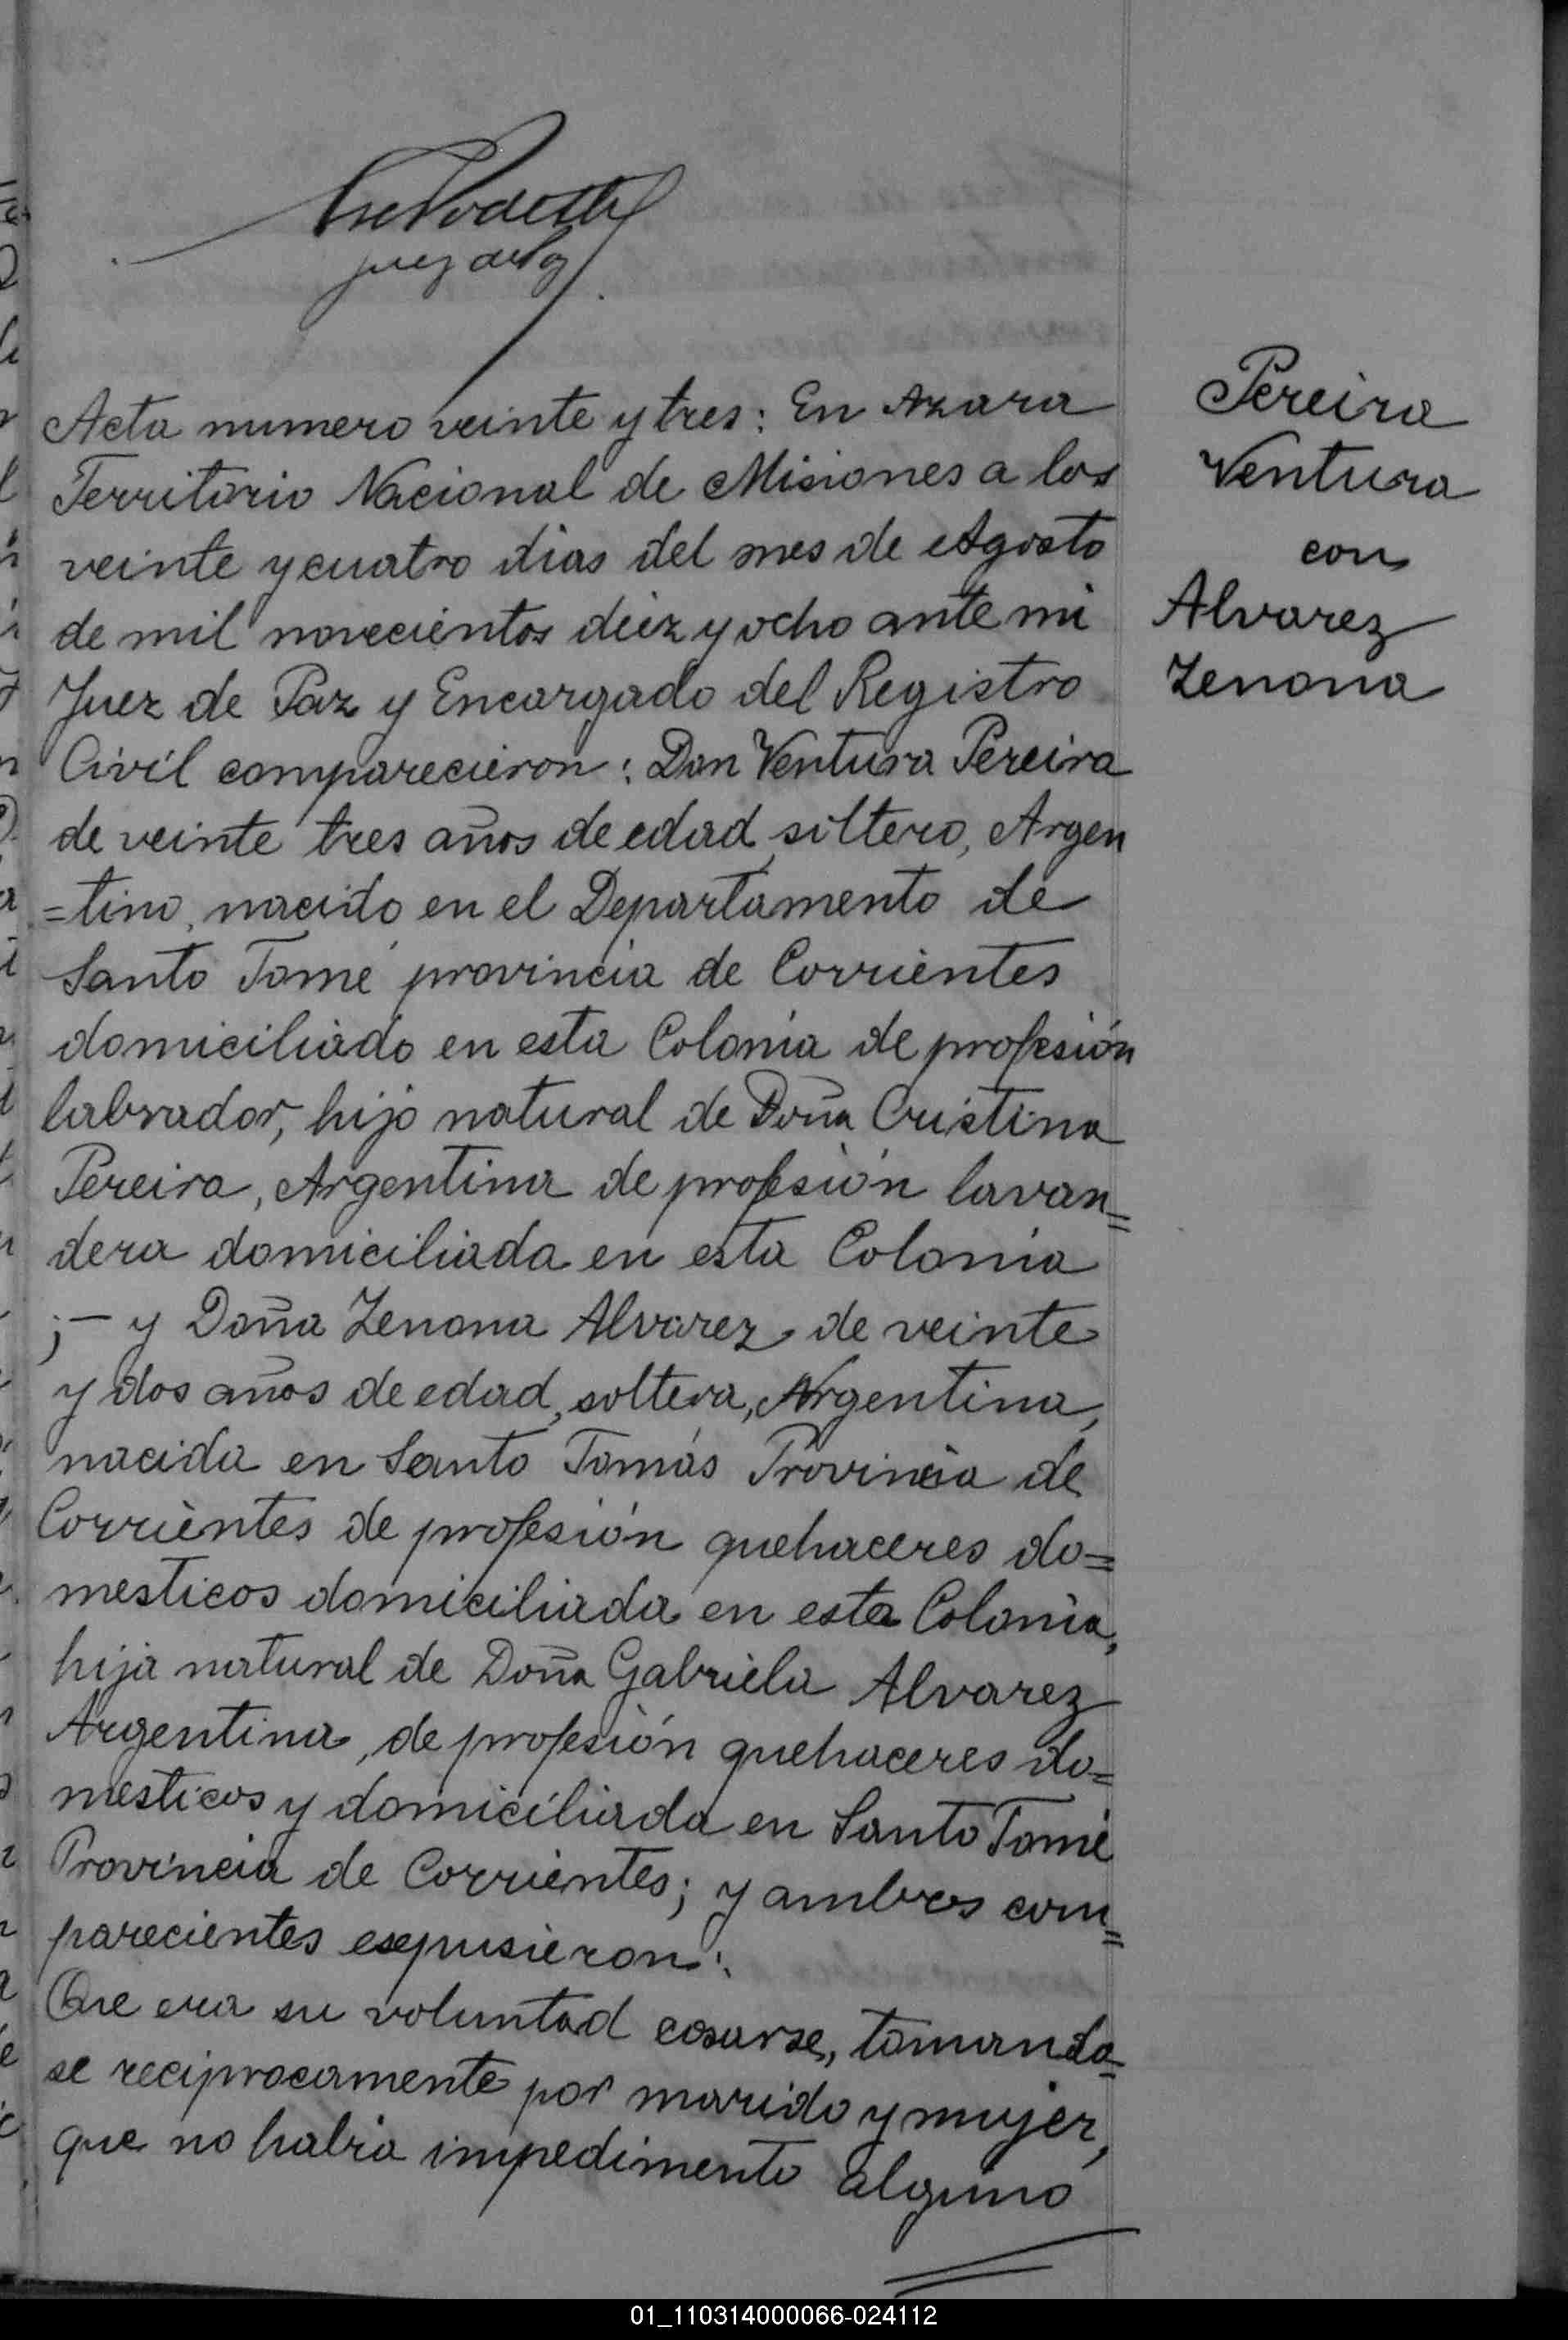 Juez de Paz
Acta numero veinte y tres: En Azara
Territorio Nacional de Misiones a los
veinte y cuatro dias del mes de Agosto
de mil novecientos diez y ocho ante mi
Juez de Paz y Encargado del Registro
Civil comparecieron: Don Ventura Pereira
de veinte tres años de edad, soltero, Argen
=tino, nacido en el Departamento de
Santo Tomé provincia de Corrientes
domiciliado en esta Colonia de profesión
labrador, hijo natural de Doña Cristina
Pereira, Argentina de profesión lavan=
dera domiciliada en esta Colonia
;- y Doña Zenona Alvarez de veinte
y dos años de edad, soltera, Argentina,
nacida en Santo Tomás Provincia de
Corrientes de profesión quehaceres do=
mesticos domiciliada en esta Colonia,
hija natural de Doña Gabriela Alvarez
Argentina, de profesión quehaceres do=
mesticos y domiciliada en Santo Tomé
Provincia de Corrientes; y ambos com=
parecientes expusieron:
Que era su voluntad casarse, tomando=
se reciprocamente por marido y mujer,
que no habia impedimento alguno
Pereira
Ventura
con
Alvarez
Zenona
01_110314000066-024112